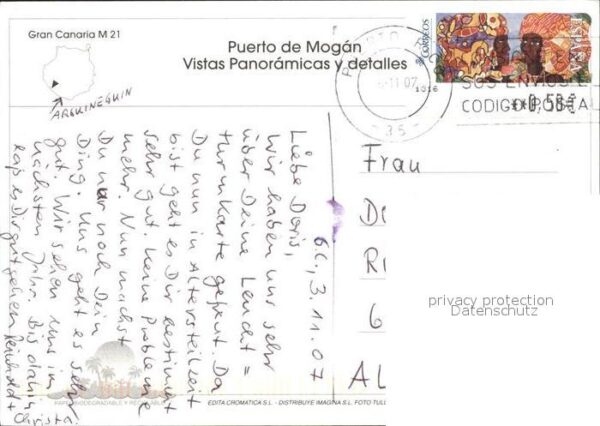 Gran Canaria M 21
Puerto de Mogán
Vistas Panorámicas y detalles
ARGUINEGUIN
CORREOS
ESPAÑA
11 07
1016
35
SUS ENVIOS
CODIGO POSTA
0,58€
G.C., 3.11.07
Liebe Doris,
Wir haben uns sehr
über Deine Leucht=
turmkarte gefreut. Da
Du nun in Altersteilzeit
bist geht es Dir bestimmt
sehr gut. Keine Probleme
mehr. Nun machst
Du nur noch Dein
Ding. Uns geht es sehr
gut. Wir sehen uns im
nächsten Jahr. Bis dahin
laß es Dir gut gehen
Reinhold +
Christa
Frau
D
R
6
AL
privacy protection
Datenschutz
EDITA CROMATICA S.L. - DISTRIBUYE IMAGINA S.L. FOTO